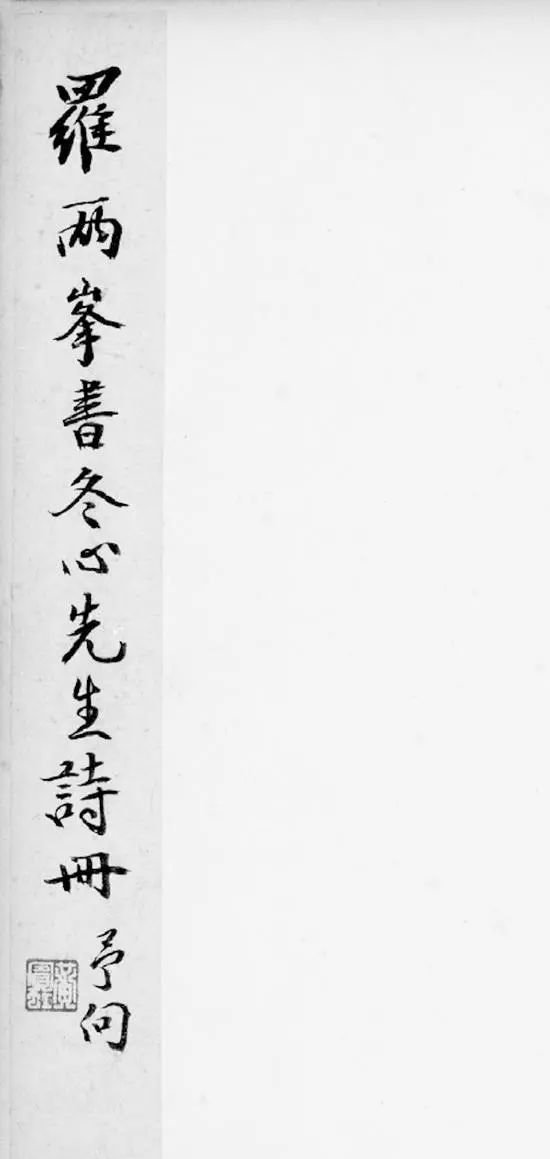 羅兩峯書冬心先生詩冊
予向